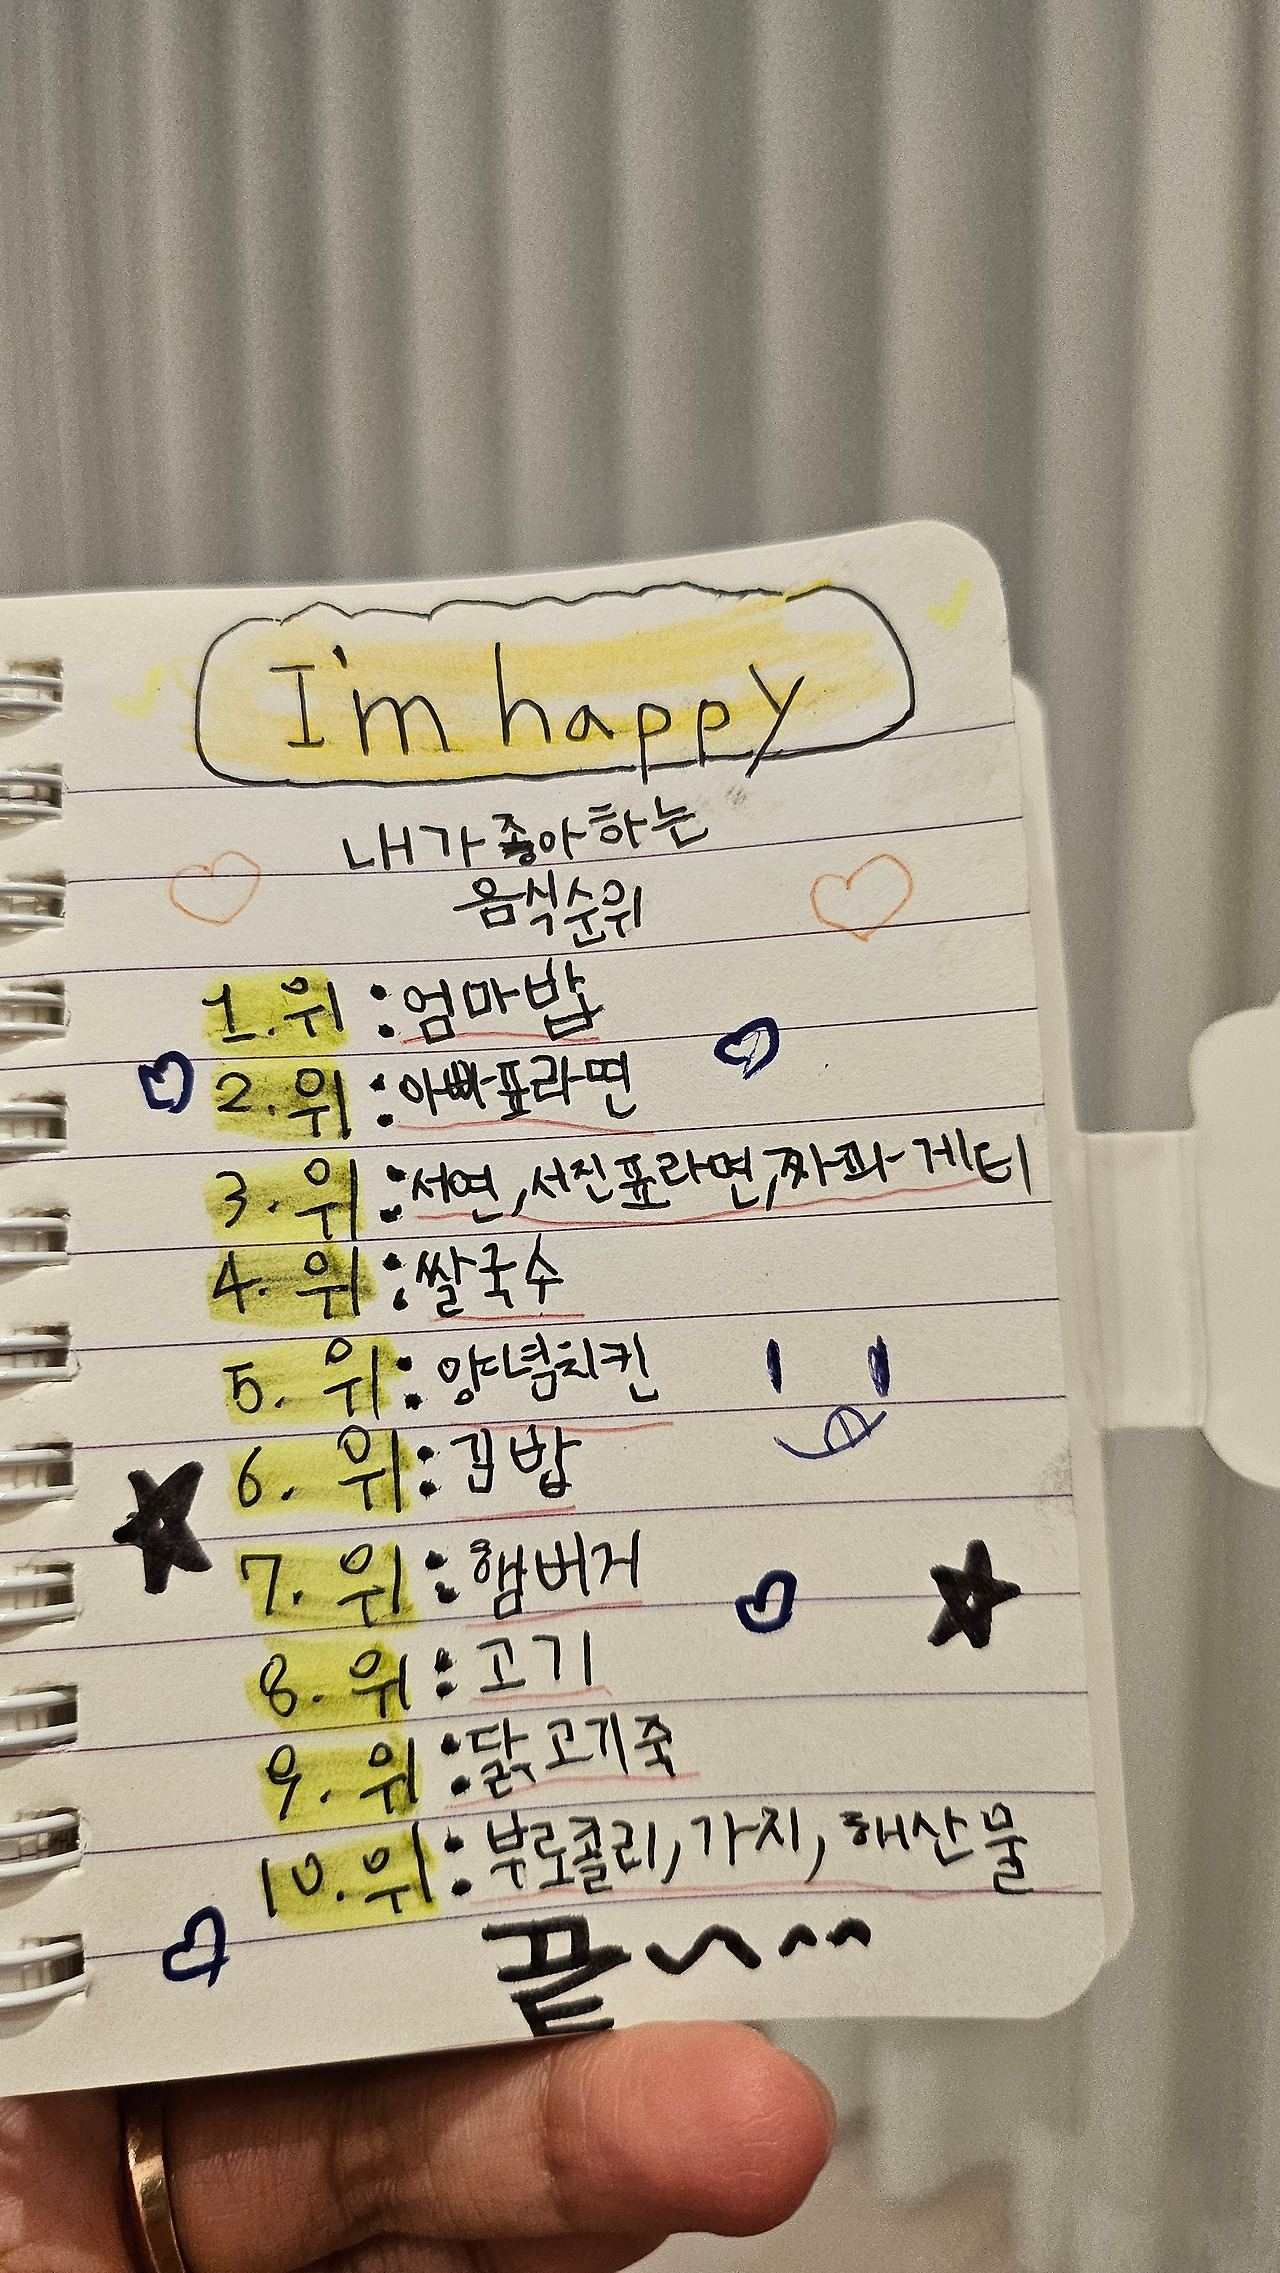 I'm happy
내가 좋아하는
음식순위
1.위:엄마밥
2.위:아빠표라면
3.위:서연,서진표라면,짜파게티
4.위:쌀국수
5.위:양념치킨
6.위:김밥
7.위:햄버거
8.위:고기
9.위:닭고기죽
10.위:부로콜리,가지,해산물
끝~^^